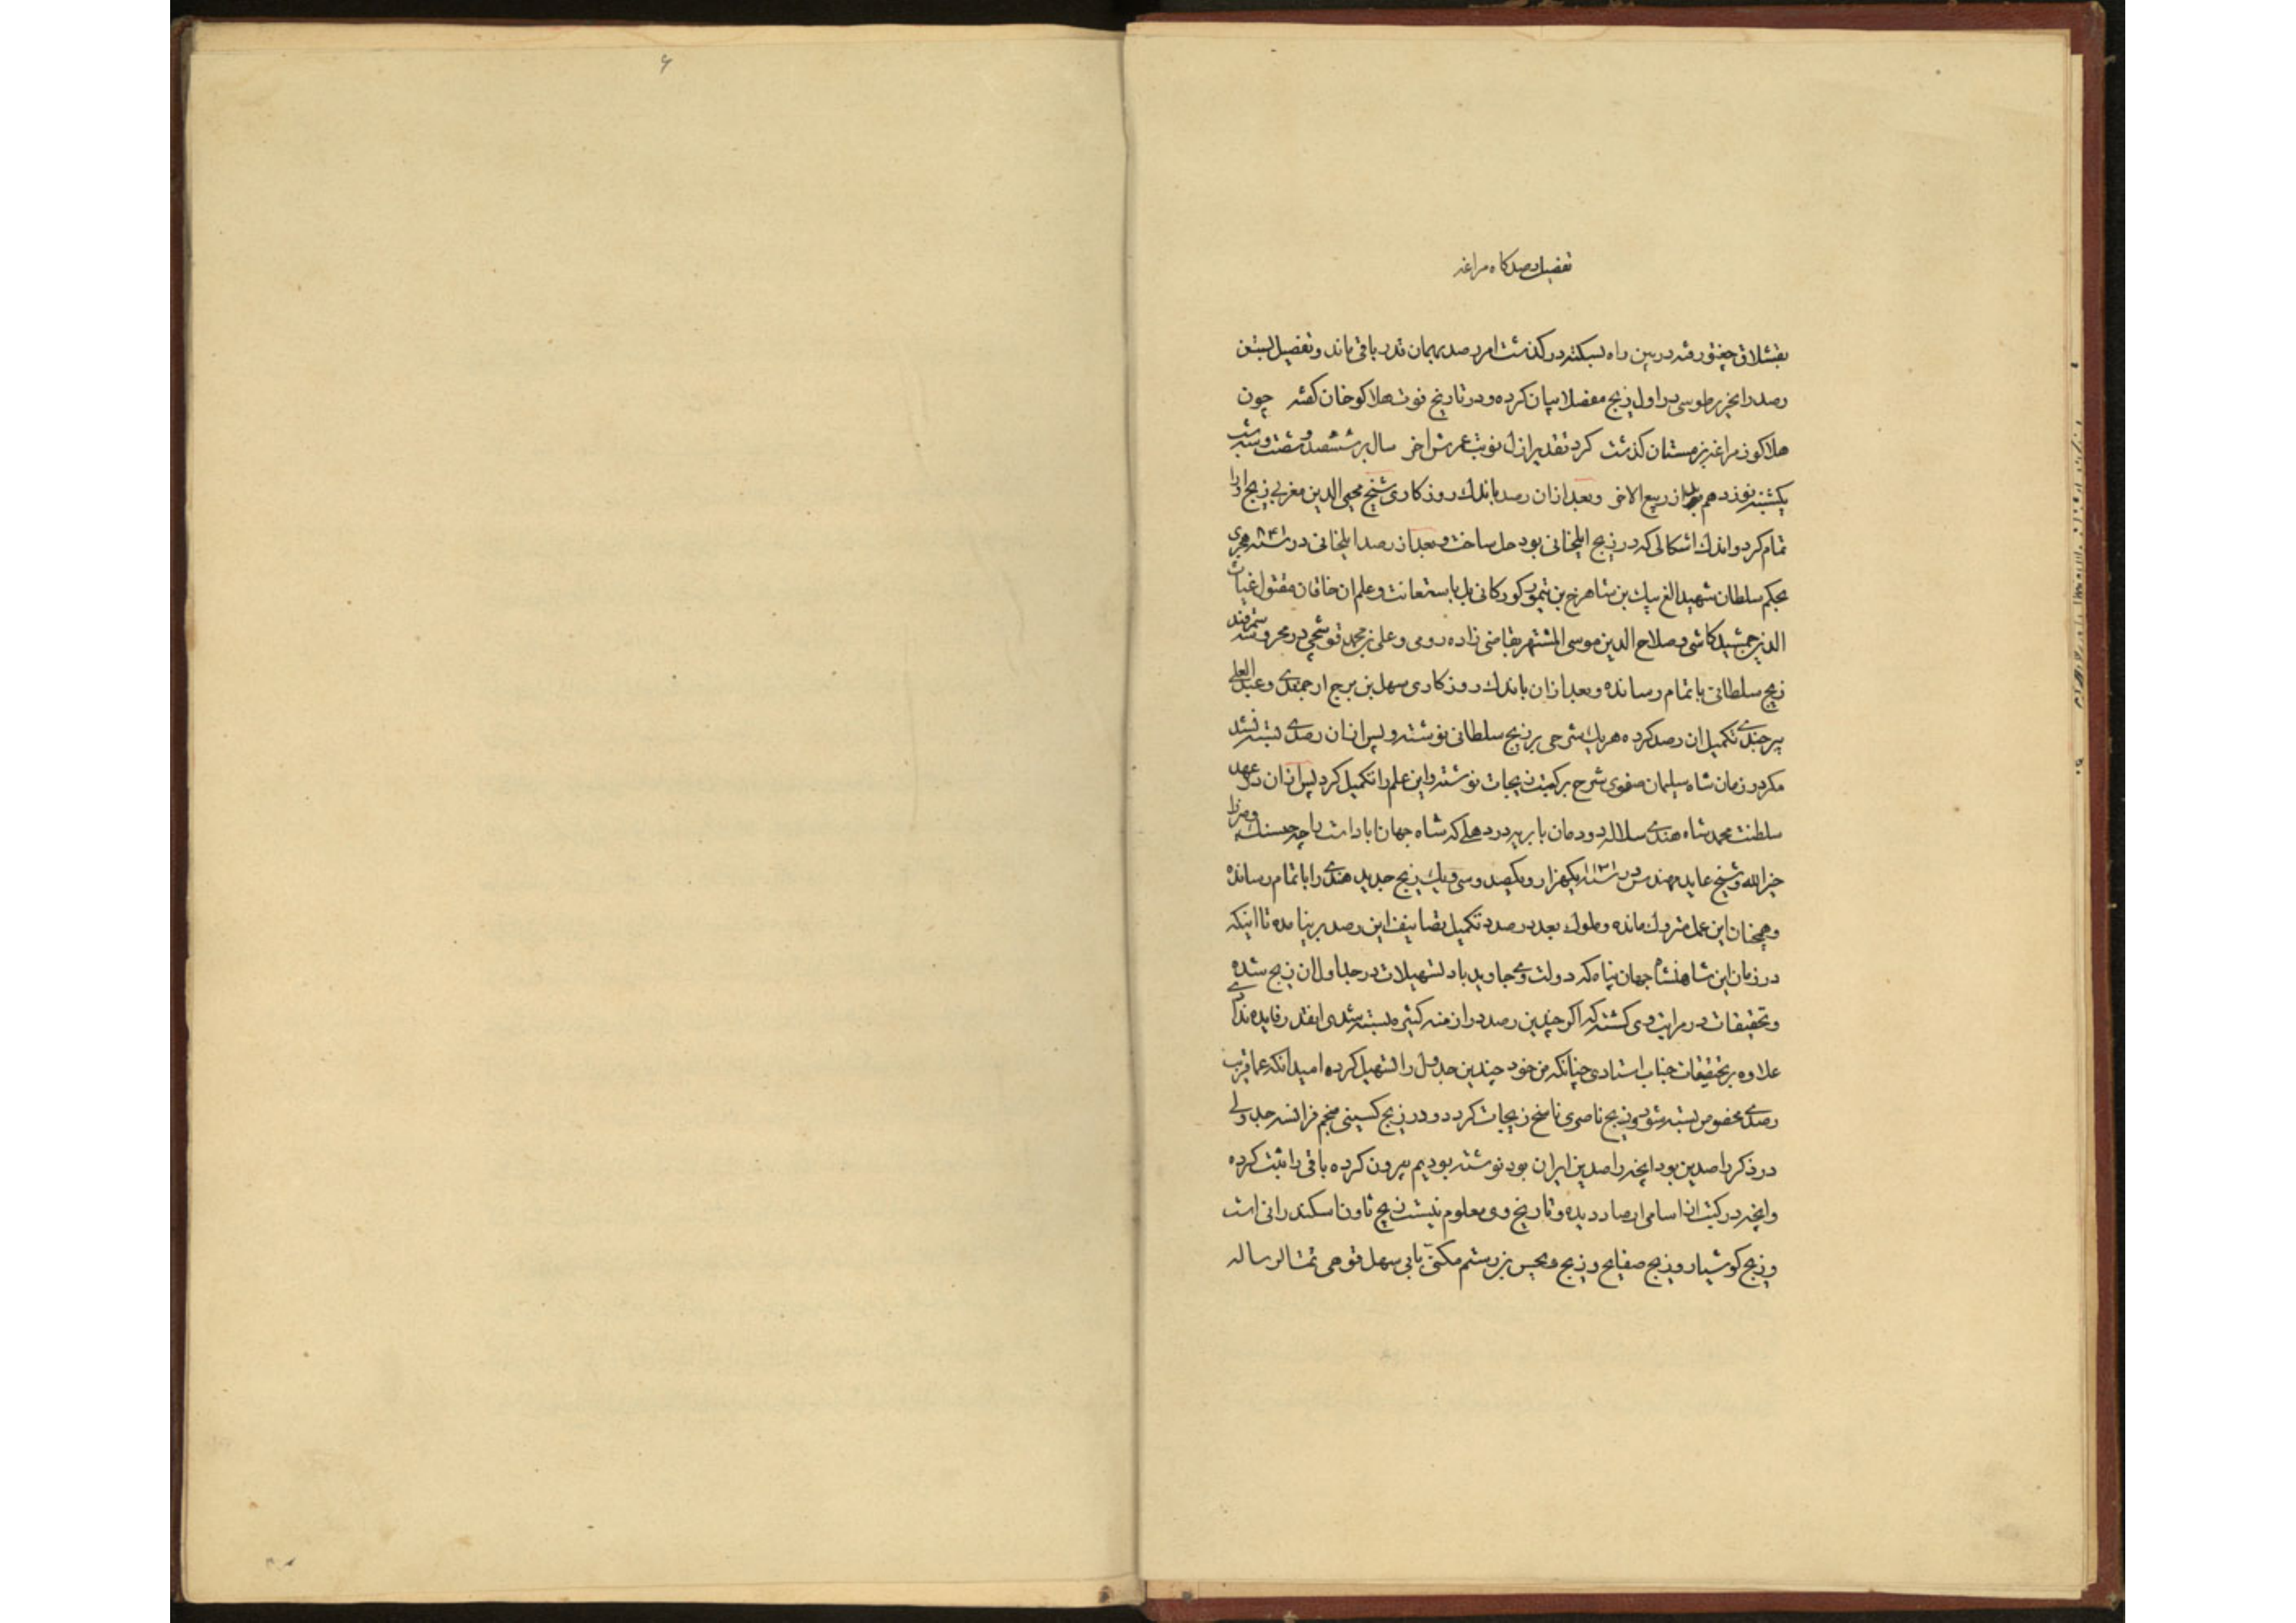 تفضیل رصد کاه مراغه
بقشلاق چغتو رفته در بین راه بسکته در کذشت امر رصد بهمان قدر باقی ماند و تفصیل بستن
رصد را نحریر طوسی در اول زیج مفصلا بیان کرده و در تاریخ فوت هلاکو خان کفته چون
هلاکو ز مراغه بزمستان کذشت کرد تقدیر ازل نوبت عمرش اخر سال بر ششصد و شصت و سه شب
یکشنبه نوزدهم بد از ربیع الاخر و بعد از ان رصد باندك روزکاری شیخ محیی الدین مغربی زیج را
تمام کرد و اندك اشکالی که در زیج ایلخانی بود حل ساخت و بعد از رصد ایلخانی در سنه ۸۴۱ هجری
بحکم سلطان شهید الغ بیك بن شاهرخ بن تیمور کورکانی بل باستعانت و علم ان خاقان مقتول غیاث
الدین جمشید کاشی و صلاح الدین موسی المشتهر بقاضی زاده رومی و علی بن محمد قوشچی در محروسه سمرقند
زیج سلطانی باتمام رسانده و بعد از ان باندك روزکاری سهل بن برج ارجمندی و عبد العلی
بیرجندی تکمیل ان رصد کرده هر یك شرحی بر زیج سلطانی نوشته و پس از ان رصدی بسته نشد
مکر در زمان شاه سلیمان صفوی شرح بر کتب زیجات نوشته و این علم را تکمیل کرد پس از ان در عهد
سلطنت محمد شاه هندی سلاله دودمان بابریه در دهلی که شاه جهان اباد است راجه جیسنك و میرزا
خیر الله و شیخ عابد مهندس در سنه ۱۱۳۱ یکهزار و یکصد و سی و یك زیج جدید هندی را باتمام رسانده
و همچنان این عمل متروك مانده و ملوك بعد در صدد تکمیل تصانیف این رصد بر نیامده تا اینکه
در زمان این شاهنشاه جهان پناه که دولت وی جاوید باد تسهیلات در جداول ان زیج شده
و تحقیقات در مراتب وی کشته که اکر چندین رصد در ازمنه کثیره بسته شدی اینقدر فایده ندادی
علاوه بر تحقیقات جناب استادی چنانکه من خود چندین جدول را تسهیل کرده امید انکه عما قریب
رصدی مخصوص بسته شود و زیج ناصری ناسخ زیجات کردد و در زیج کسینی منجم فرانسه جدولی
در ذکر راصدین بود انچه راصدین ایران بود نوشته بودیم بیرون کرده باقی را ثبت کرده
و انچه در کتب از اسامی ارصاد دیده و تاریخ وی معلوم نیست زیج ثاون اسکندرانی است
و زیج کوشیار و زیج صفایح و زیج ویجن بن رستم مکنی بابی سهل قوهی تمت الرساله
۶